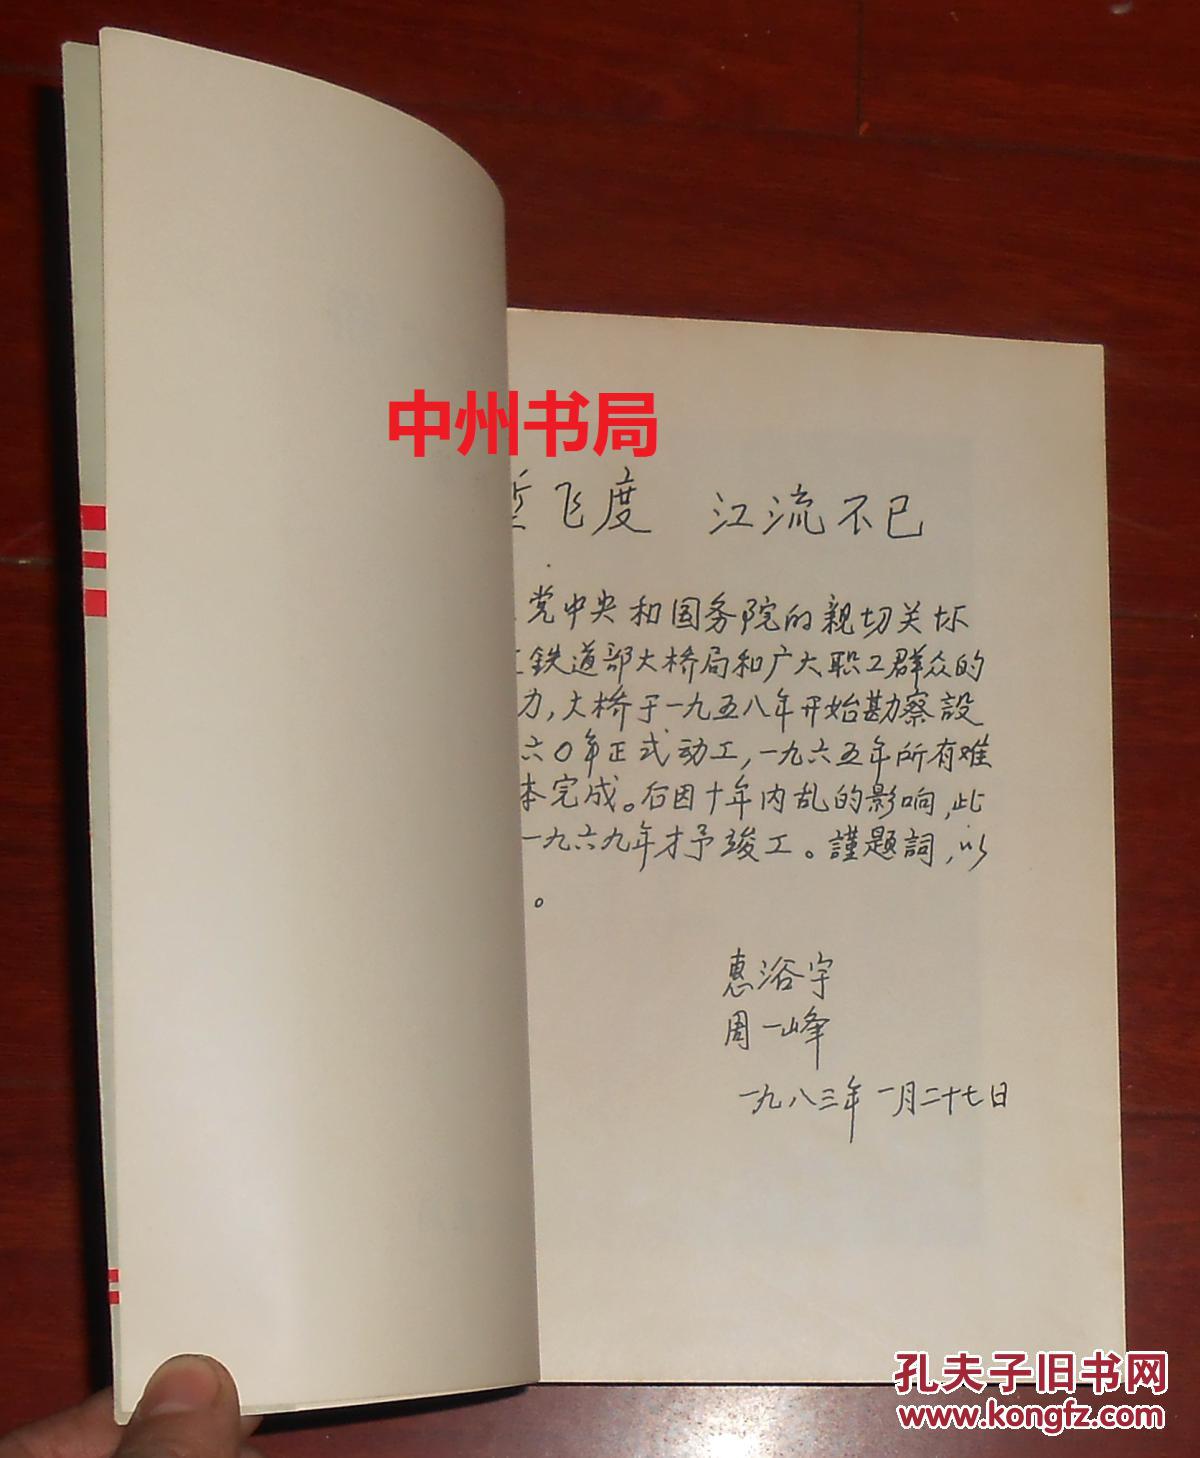 中州书局
飞度 江流不已
党中央和国务院的亲切关怀
鉄道部大桥局和广大职工群众的
力，大桥于一九五八年开始勘察設
六〇年正式动工，一九六五年所有难
本完成。后因十年内乱的影响，此
一九六九年才予竣工。謹題詞，以
。
惠浴宇
周一峰
一九八三年一月二十七日
孔夫子旧书网
www.kongfz.com